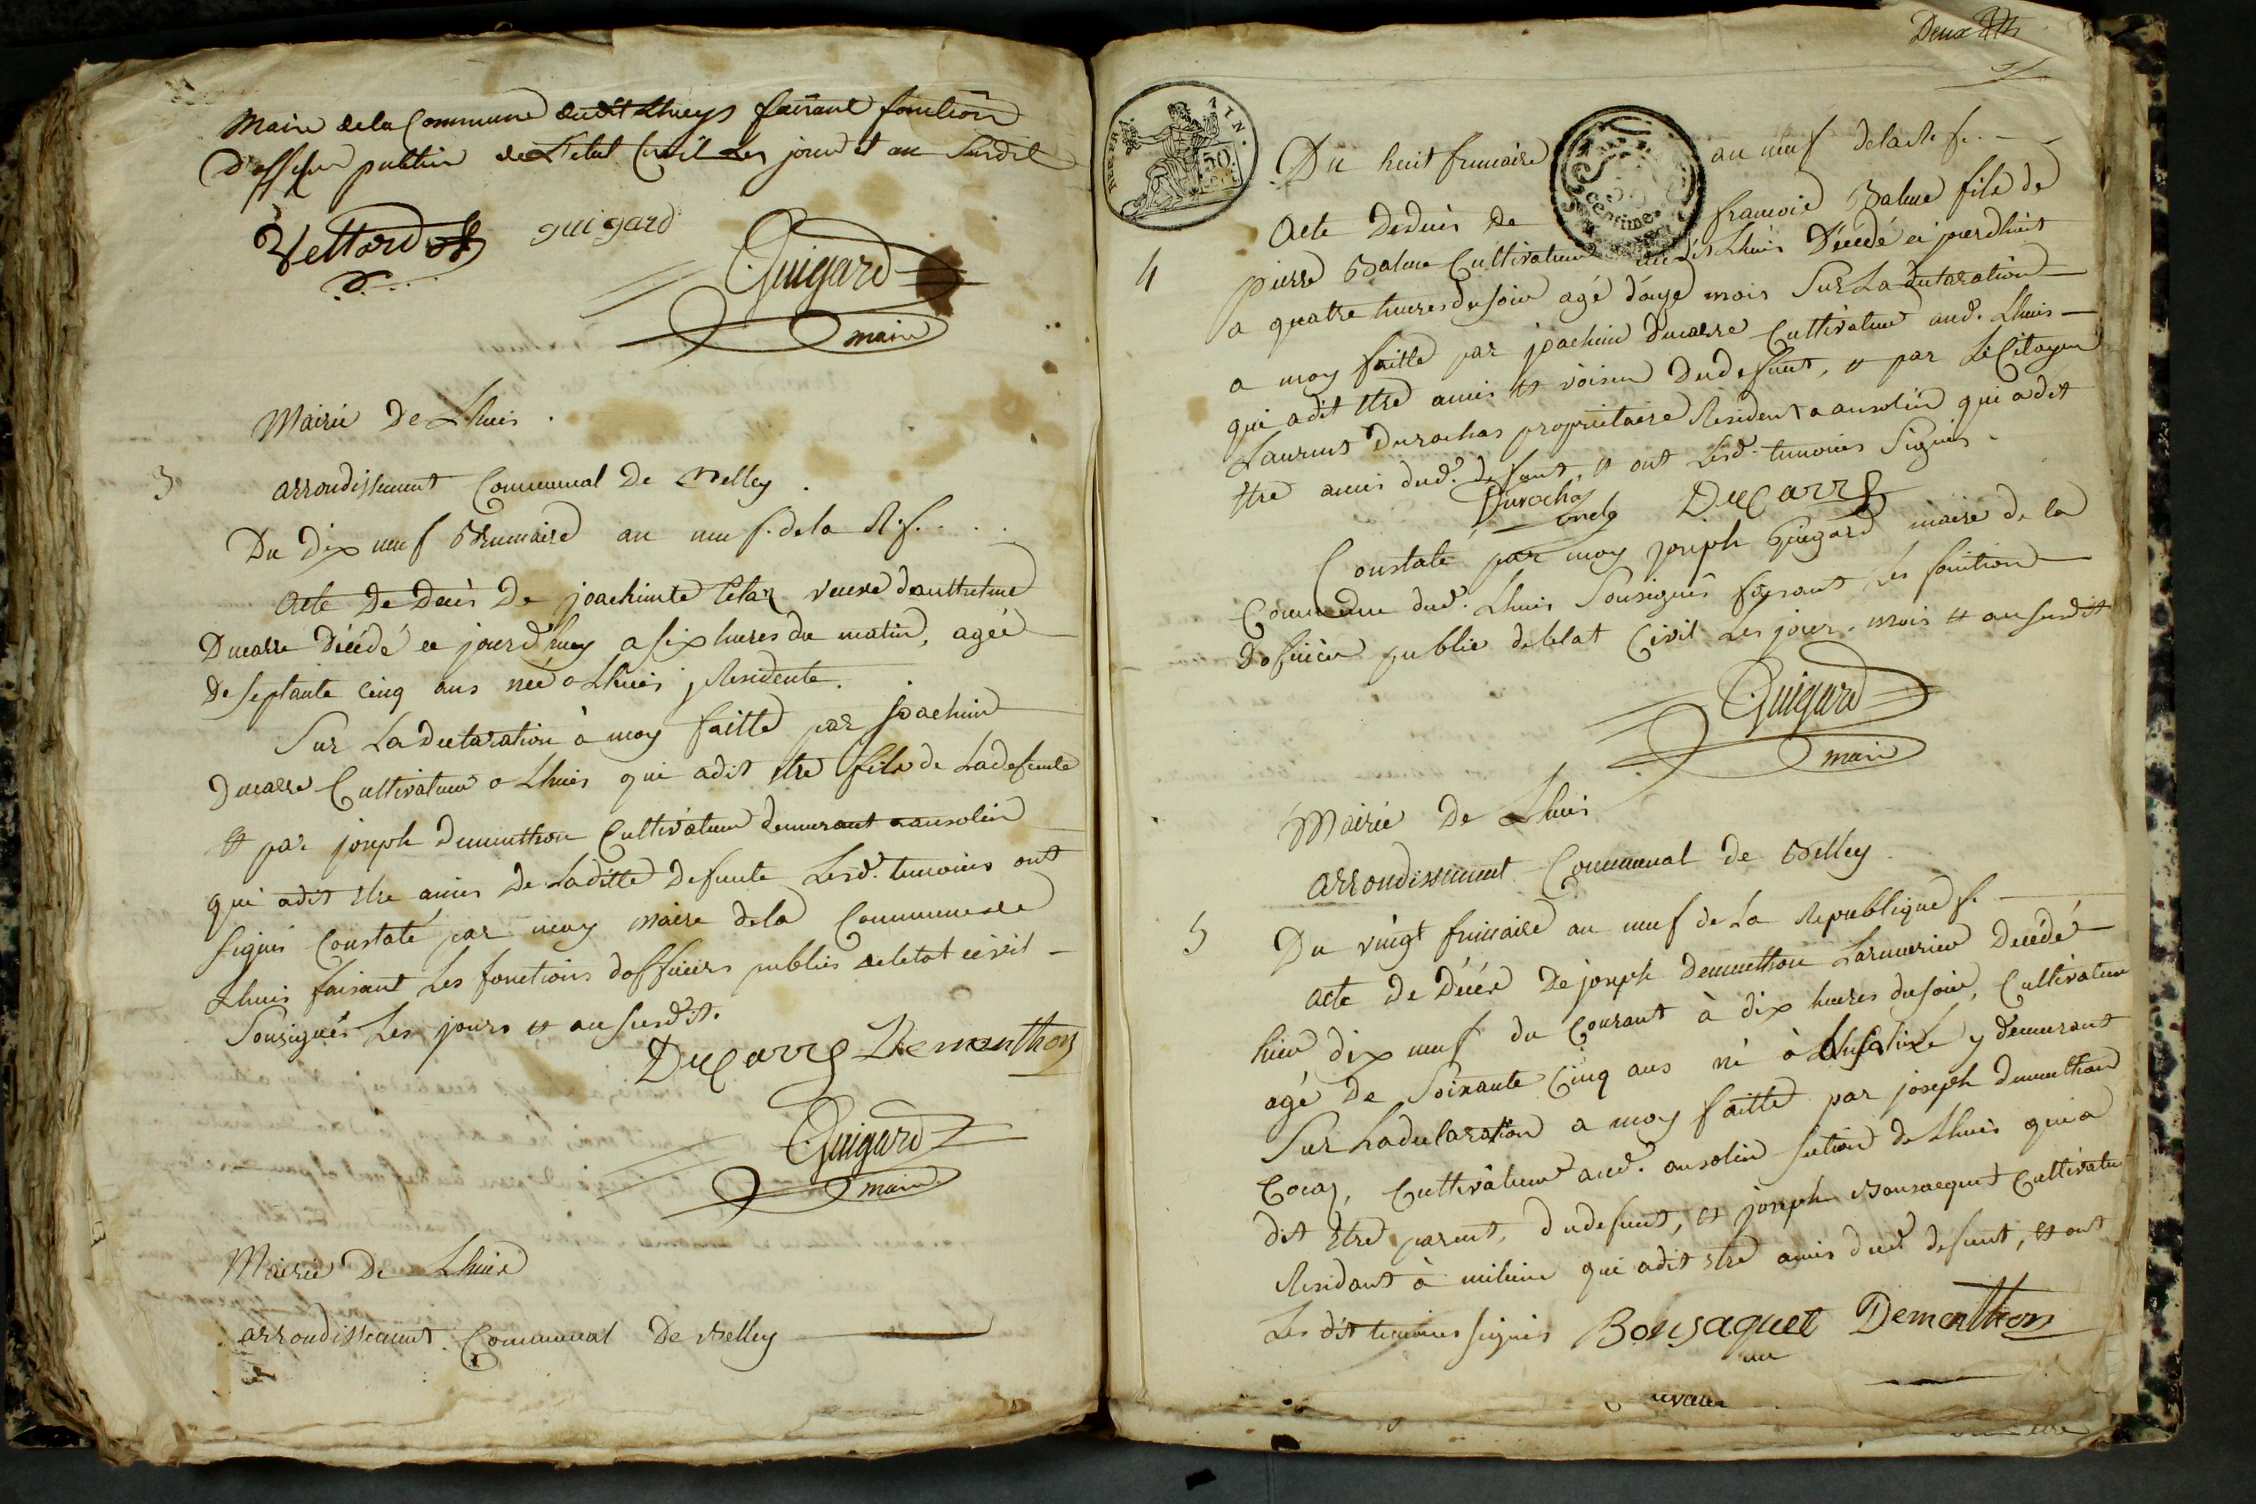 Maire de la Commune dudit Lhuys faisant fonction
d'officier public de L'etat Civil les jour et an Susdit
Vettard
guigard
Guigard
maire
Mairie De Lhuis.
3
arrondissement Communal De Belley.
Du Dix neuf Brumaire an neuf. de la R. f.
Acte De Decès De joachimte veuve danthelme
Ducarre Décédé ce jourd'huy a six heures du matin, agée
De septante cinq ans née a Lhuis y Residente.
Sur La declaration à moy faitte par Joachim
Ducarre Cultivateur a Lhuis qui a dit etre fils de La defunte
et par joseph Dementhon Cultivateur demeurant a ansolin
qui a dit etre amis De Laditte Defunte Lesd. temoins ont
signés Constaté par moy maire dela Commune de
Lhuis faisant les fonctions dofficiers publics de letat civil
Sousigné Les jours et an susdit.
Ducarre Dementhon
Guigard
maire
Mairie De Lhuis
arrondissement Communal De Belley
Deux
2
RÉP. FRA. AIN.
50.
Du huit frimaire an neuf dela R. f.
centime
4
Acte Dedecès de francois Balme fils de
pierre Balme Cultivateur dudit Lhuis Décédé ci jourdhuit
a quatre heures du soir agé d'onze mois Sur La declaration
a moy faitte par joachim Ducarre Cultivateur aud. Lhuis
qui a dit etre amis et voisin Dudefunt, et par Le Citoyen
Laurent Durochas propriétaire Resident a ansolin qui a dit
etre amis dud. defunt, et ont Lesd. temoins Signés.
Durochas oncle Ducarre
Constaté par moy joseph Guigard maire de la
Commune dud. Lhuis Sousigné faisant les fonction
Doficier public deletat Civil Les jour, mois et an susdit
Guigard
maire
Mairie De Lhuis
arrondissement Communal de Belley
5
Du vingt frimaire an neuf de La Republique f.
Acte De Décés De joseph Dementhon Decédé
hier dix neuf du Courant à dix heures du soir, Cultivateur
agé De Soixante Cinq ans né à y demeurant
Sur La declaration a moy faitte par joseph dementhon
Cultivateur aud. ansolin section de Lhuis qui a
dit Etre parent, dudefunt, et joseph Bonsacquet Cultivateur
Residant à qui a dit etre amis dud. defunt, et ont
Les dit temoins signés Bonsaquet Dementhon